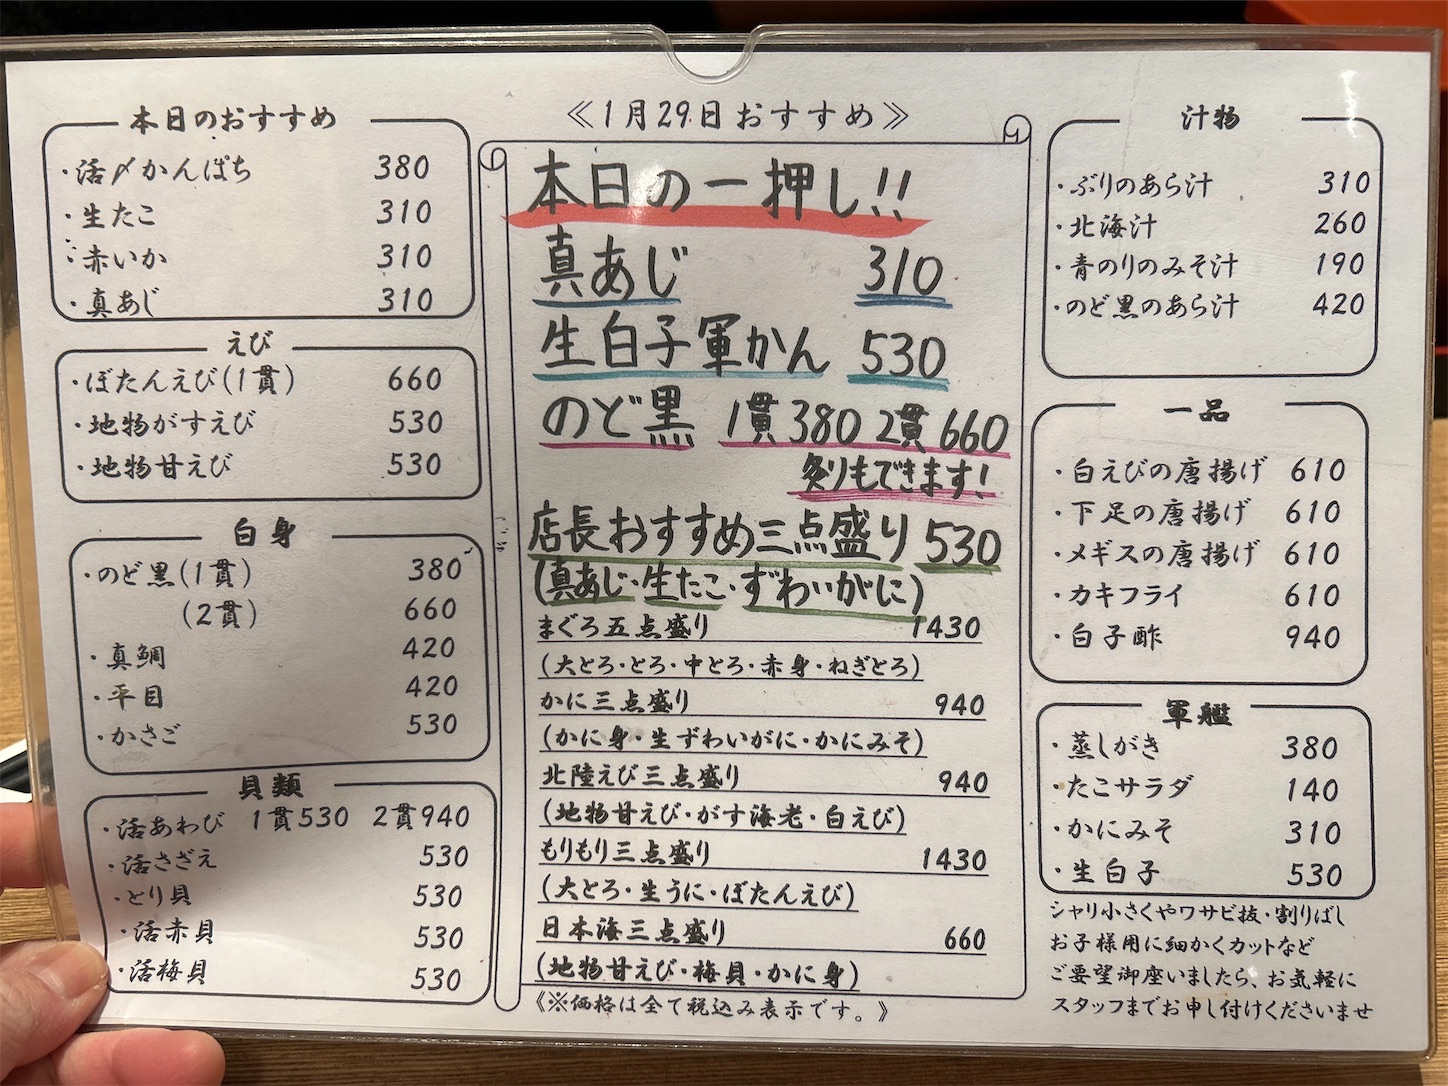 ≪1月29日おすすめ≫
本日のおすすめ
・活〆かんぱち 380
・生たこ 310
・赤いか 310
・真あじ 310
えび
・ぼたんえび(1貫) 660
・地物がすえび 530
・地物甘えび 530
白身
・のど黒(1貫) 380
(2貫) 660
・真鯛 420
・平目 420
・かさご 530
貝類
・活あわび 1貫530 2貫940
・活さざえ 530
・とり貝 530
・活赤貝 530
・活梅貝 530
本日の一押し!!
真あじ 310
生白子軍かん 530
のど黒 1貫380 2貫660
炙りもできます!
店長おすすめ三点盛り 530
(真あじ・生たこ・ずわいがに)
まぐろ五点盛り 1430
(大とろ・とろ・中とろ・赤身・ねぎとろ)
かに三点盛り 940
(かに身・生ずわいがに・かにみそ)
北陸えび三点盛り 940
(地物甘えび・がす海老・白えび)
もりもり三点盛り 1430
(大とろ・生うに・ぼたんえび)
日本海三点盛り 660
(地物甘えび・梅貝・かに身)
《※価格は全て税込み表示です。》
汁物
・ぶりのあら汁 310
・北海汁 260
・青のりのみそ汁 190
・のど黒のあら汁 420
一品
・白えびの唐揚げ 610
・下足の唐揚げ 610
・メギスの唐揚げ 610
・カキフライ 610
・白子酢 940
軍艦
・蒸しがき 380
・たこサラダ 140
・かにみそ 310
・生白子 530
シャリ小さくやワサビ抜・割りばし
お子様用に細かくカットなど
ご要望御座いましたら、お気軽に
スタッフまでお申し付けくださいませ